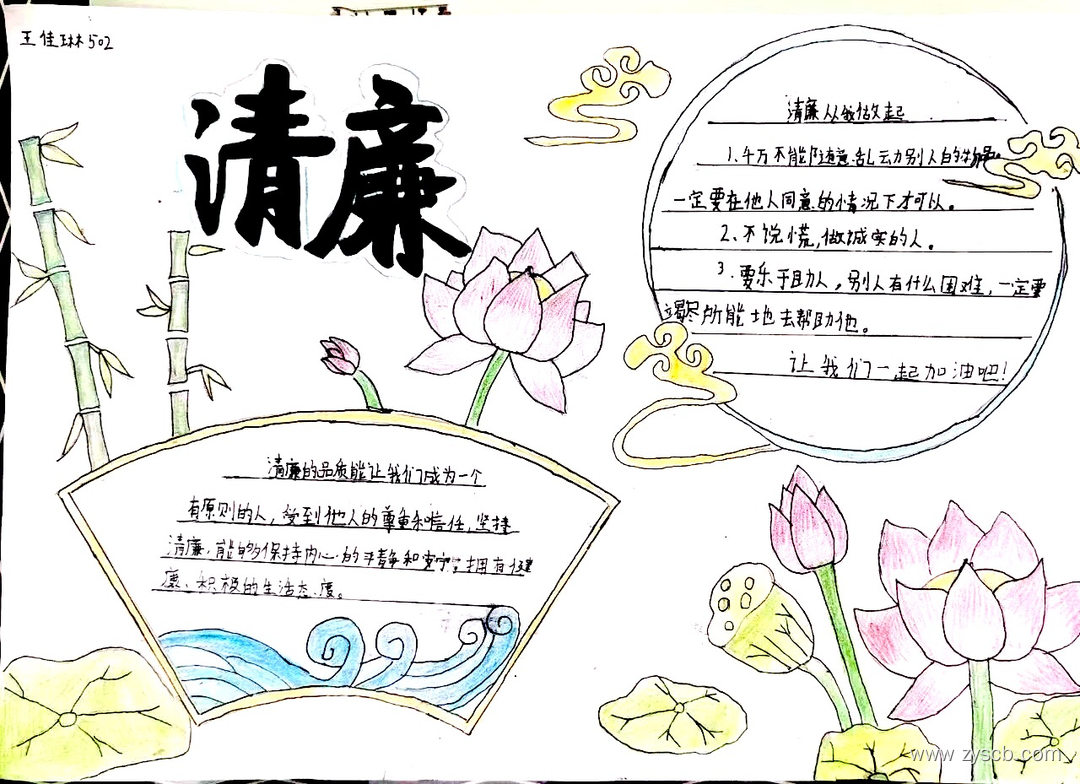 王佳琳502
清廉
清廉从我做起
1.千万不能随意乱动别人的物品。
一定要在他人同意的情况下才可以。
2、不说慌,做诚实的人。
3.要乐于助人,别人有什么困难,一定要
竭尽所能地去帮助他。
让我们一起加油吧!
清廉的品质能让我们成为一个
有原则的人,受到他人的尊重和信任,坚持
清廉,能够保持内心的平静和安宁,拥有健
康、积极的生活态度。
www.zyscb.com